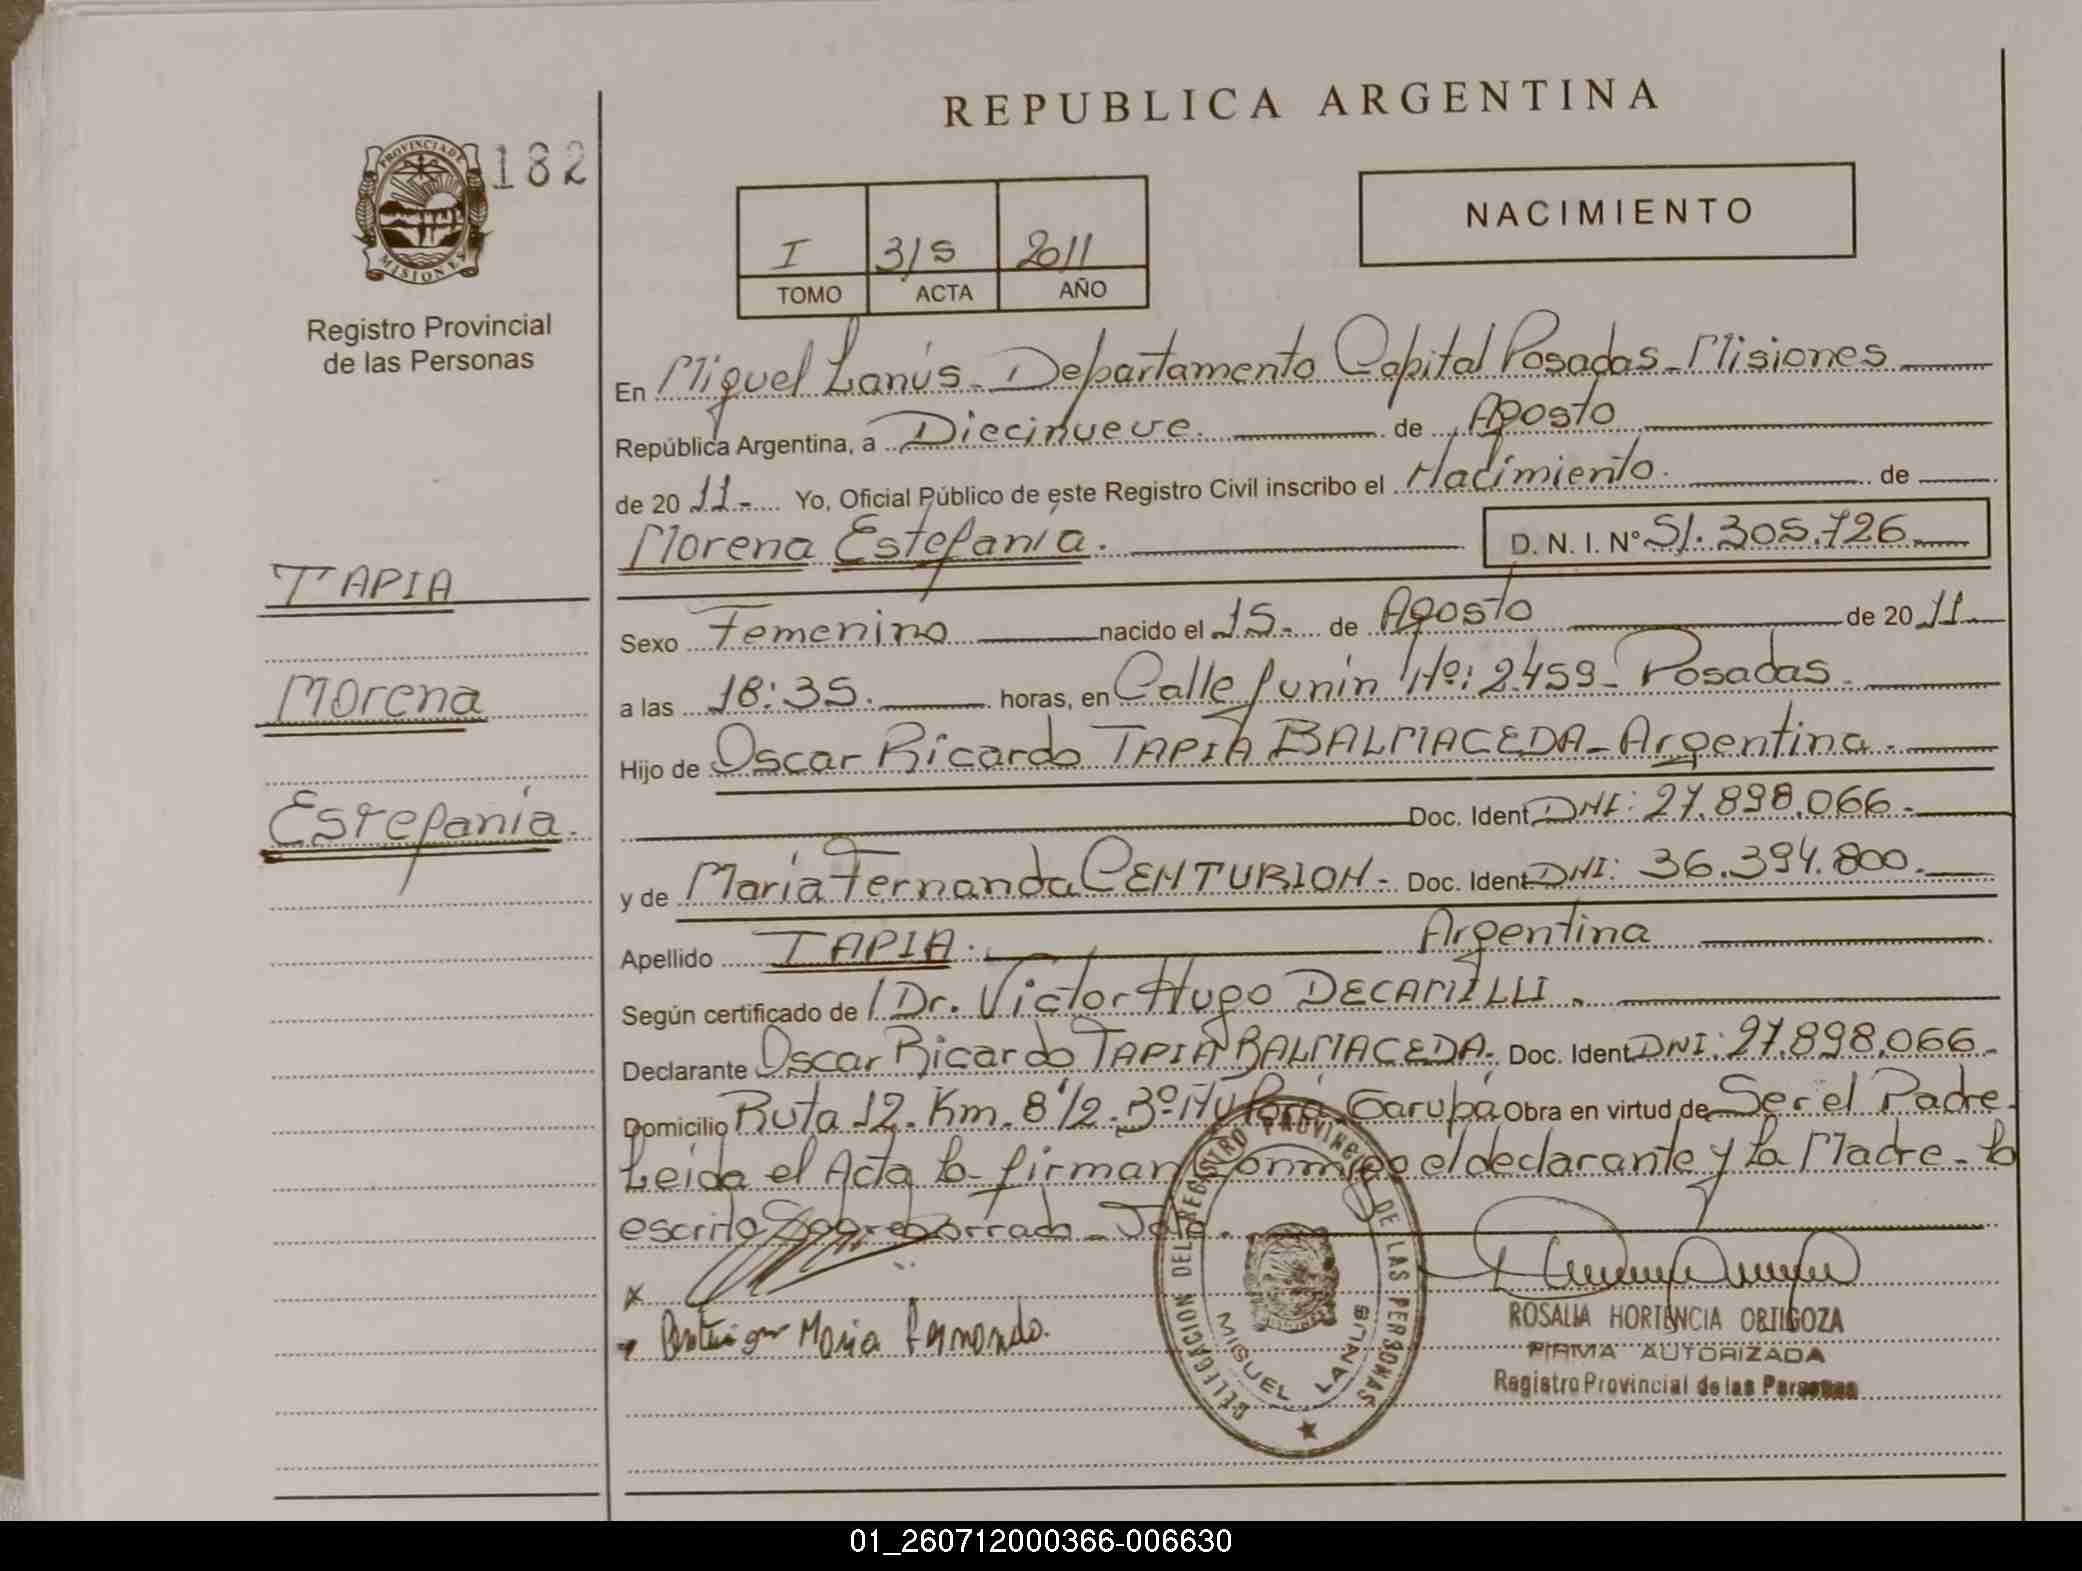 REPUBLICA ARGENTINA
PROVINCIA DE MISIONES
182
Registro Provincial
de las Personas
NACIMIENTO
I 315 2011
TOMO ACTA AÑO
En Miguel Lanús - Departamento Capital Posadas - Misiones
República Argentina, a Diecinueve. de Agosto
de 20 11.- Yo, Oficial Público de este Registro Civil inscribo el Nacimiento. de
Morena Estefanía. D. N. I. Nº 51.305.726.
TAPIA
Morena
Estefanía.
Sexo Femenino nacido el 15.- de Agosto de 20 11
a las 18:35. horas, en Calle Junín Nº: 2459 - Posadas.
Hijo de Oscar Ricardo TAPIA BALMACEDA - Argentina.
Doc. Ident DNI: 27.898.066.
y de María Fernanda CENTURION - Doc. Ident DNI: 36.394.800.
Apellido TAPIA. Argentina
Según certificado de / Dr. Victor Hugo DECAMILLI.
Declarante Oscar Ricardo TAPIA BALMACEDA. Doc. Ident DNI: 27.898.066
Domicilio Ruta 12. Km. 8 1/2. Bº Garupá Obra en virtud de Ser el Padre.
Leída el Acta la firman conmigo el declarante y la Madre - lo
escrito Sobreborrado - Vale.
x
Maria Fernanda.
DELEGACION DEL REGISTRO PROVINCIAL DE LAS PERSONAS
MIGUEL LANUS
ROSALIA HORTENCIA ORTIGOZA
FIRMA AUTORIZADA
Registro Provincial de las Personas
01_260712000366-006630